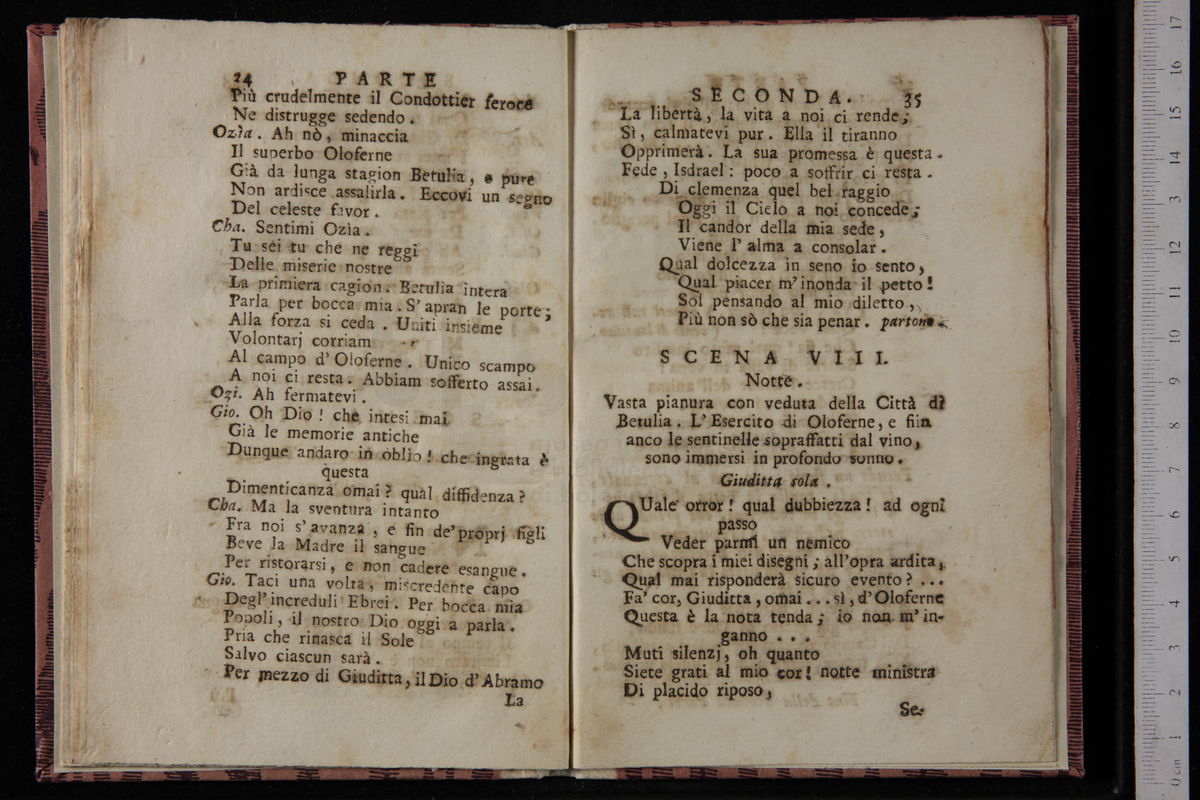 34 PARTE
Più crudelmente il Condottier feroce
Ne distrugge sedendo.
Ozìa. Ah nò, minaccia
Il superbo Oloferne
Già da lunga stagion Betulia, e pure
Non ardisce assalirla. Eccovi un segno
Del celeste favor.
Cha. Sentimi Ozìa.
Tu sei tu che ne reggi
Delle miserie nostre
La primiera cagion. Betulia intera
Parla per bocca mia. S'apran le porte;
Alla forza si ceda. Uniti insieme
Volontarj corriam
Al campo d'Oloferne. Unico scampo
A noi ci resta. Abbiam sofferto assai.
Ozi. Ah fermatevi.
Gio. Oh Dio! che intesi mai
Già le memorie antiche
Dunque andaro in oblìo! che ingrata è
questa
Dimenticanza omai? qual diffidenza?
Cha. Ma la sventura intanto
Fra noi s'avanza, e fin de'proprj figli
Beve la Madre il sangue
Per ristorarsi, e non cadere esangue.
Gio. Taci una volta, miscredente capo
Degl'increduli Ebrei. Per bocca mia
Popoli, il nostro Dio oggi a parla.
Pria che rinasca il Sole
Salvo ciascun sarà.
Per mezzo di Giuditta, il Dio d'Abramo
La
SECONDA. 35
La libertà, la vita a noi ci rende;
Sì, calmatevi pur. Ella il tiranno
Opprimerà. La sua promessa è questa.
Fede, Isdrael: poco a soffrir ci resta.
Di clemenza quel bel raggio
Oggi il Cielo a noi concede;
Il candor della mia sede,
Viene l'alma a consolar.
Qual dolcezza in seno io sento,
Qual piacer m'inonda il petto!
Sol pensando al mio diletto,
Più non sò che sia penar. partono.
SCENA VIII.
Notte.
Vasta pianura con veduta della Città di
Betulia. L'Esercito di Oloferne, e fin
anco le sentinelle sopraffatti dal vino,
sono immersi in profondo sonno.
Giuditta sola.
QUale orror! qual dubbiezza! ad ogni
passo
Veder parmi un nemico
Che scopra i miei disegni; all'opra ardita,
Qual mai risponderà sicuro evento? ...
Fa' cor, Giuditta, omai... sì, d'Oloferne
Questa è la nota tenda; io non m'in-
ganno ...
Muti silenzj, oh quanto
Siete grati al mio cor! notte ministra
Di placido riposo,
Se-